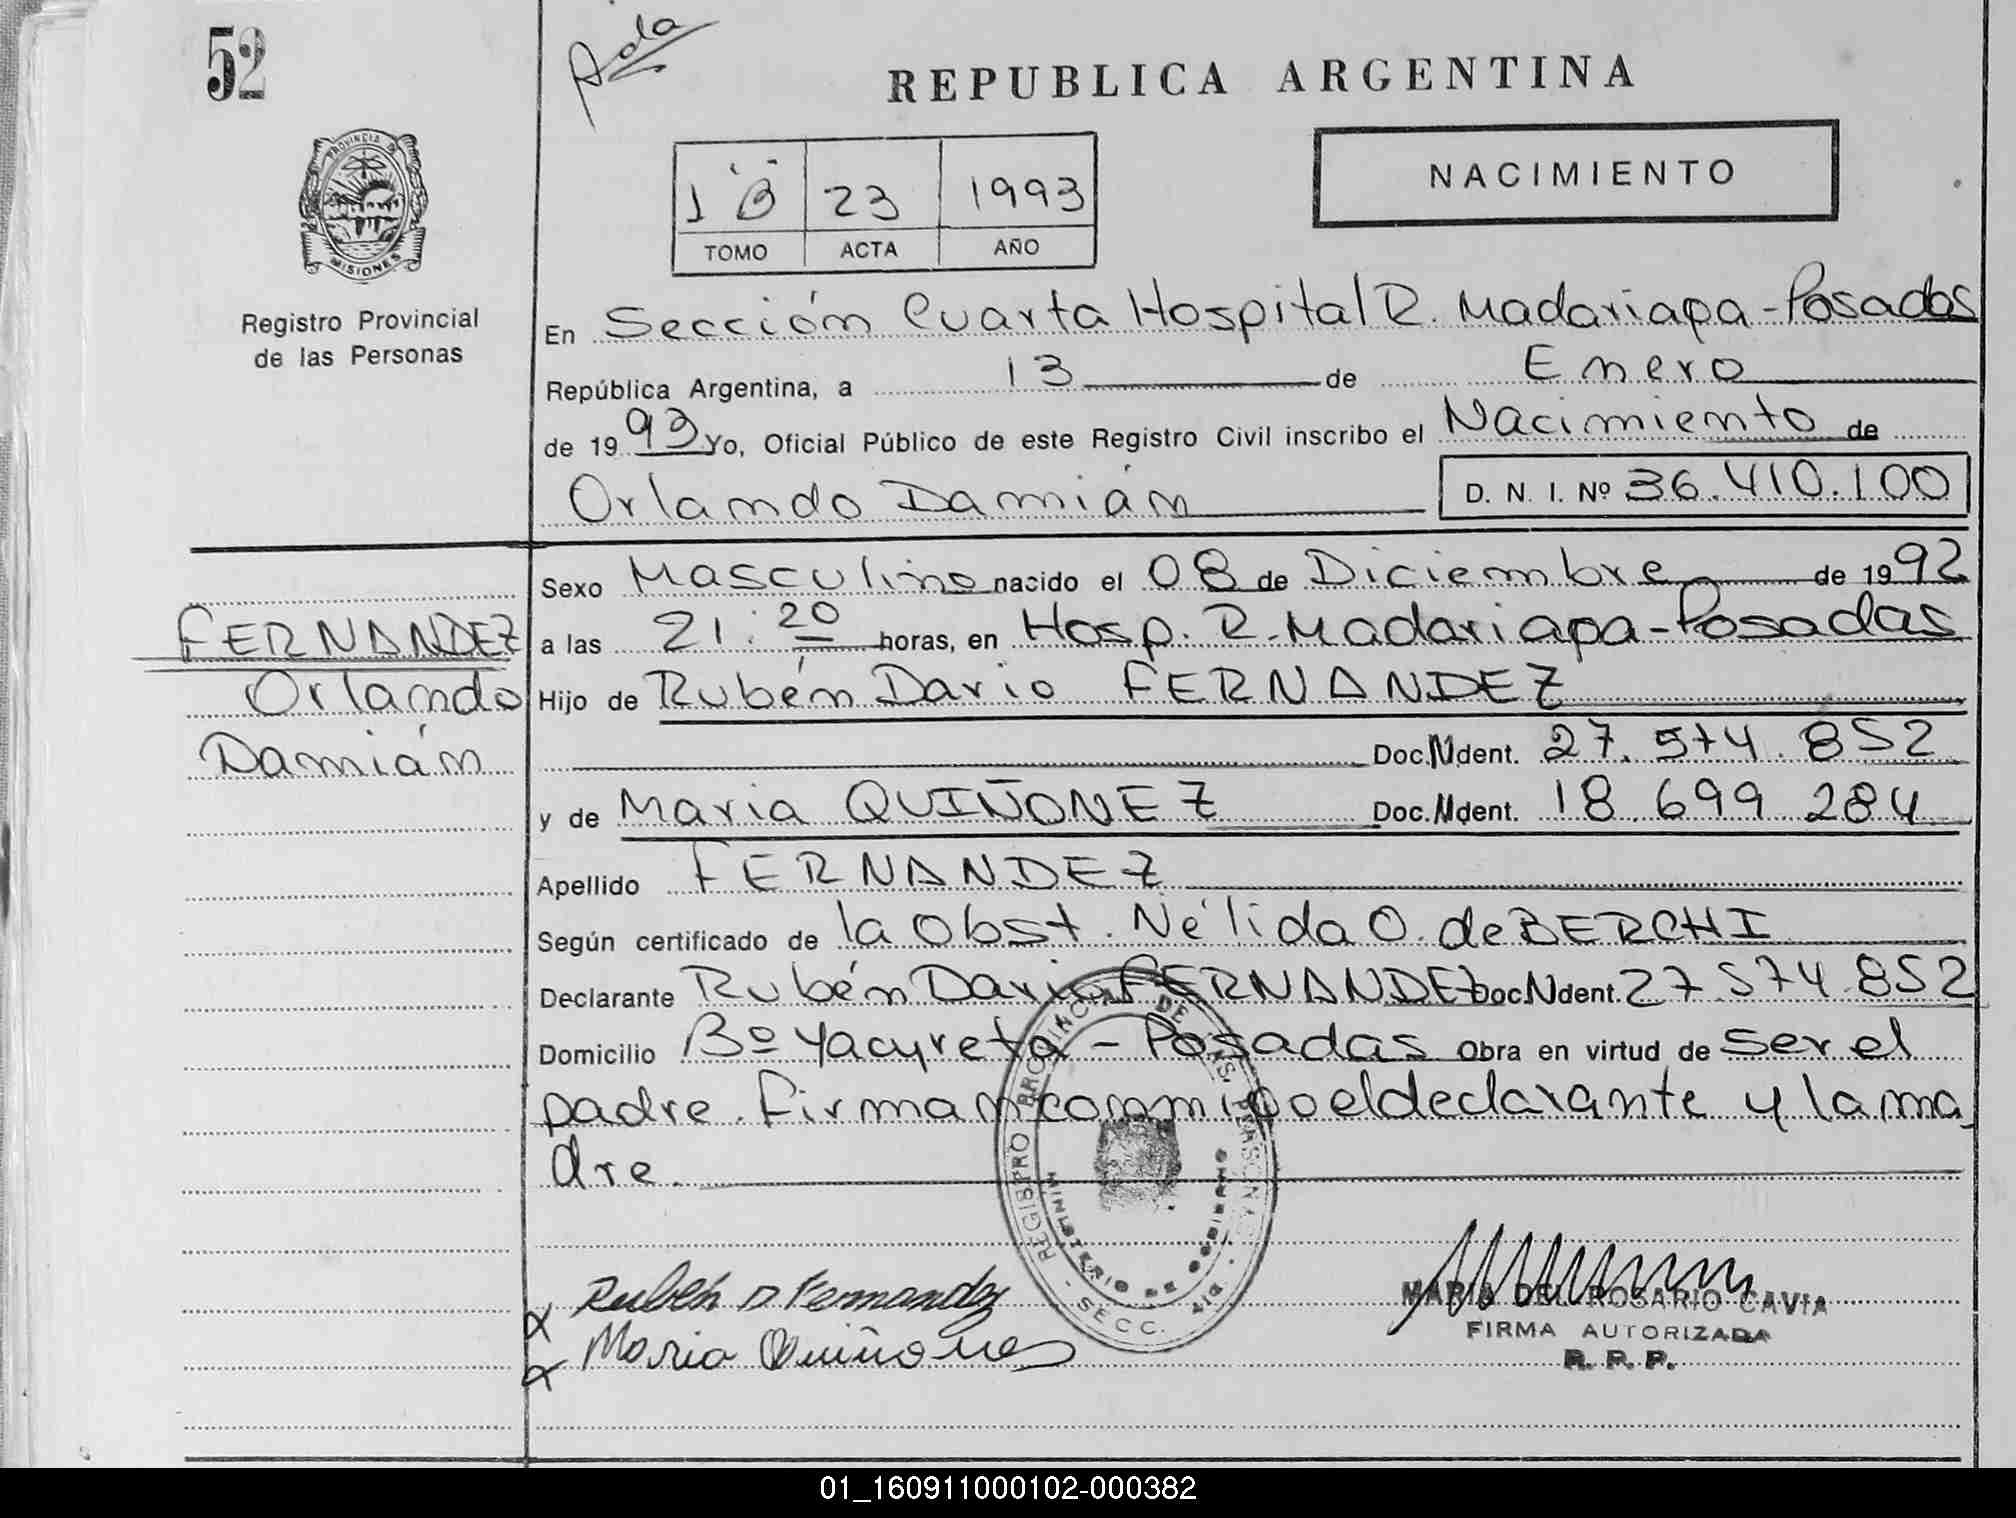 52
Ada
REPUBLICA ARGENTINA
NACIMIENTO
1 "B" 23 1993
TOMO ACTA AÑO
PROVINCIA DE MISIONES
Registro Provincial
de las Personas
En Sección Cuarta Hospital R. Madariaga - Posadas
República Argentina, a 13 de Enero
de 1993 Yo, Oficial Público de este Registro Civil inscribo el Nacimiento de
Orlando Damián D. N. I. Nº 36.410.100
Sexo Masculino nacido el 08 de Diciembre de 1992
FERNANDEZ
Orlando
Damián
a las 21:20 horas, en Hosp. R. Madariaga - Posadas
Hijo de Rubén Dario FERNANDEZ
Doc. Ident. 27.574.852
y de Maria QUIÑONEZ Doc. Ident. 18.699 284
Apellido FERNANDEZ
Según certificado de la Obst. Nélida O. de BERCHI
Declarante Rubén Dario FERNANDEZ Doc. Ident. 27.574.852
Domicilio Bº Yacyreta - Posadas Obra en virtud de ser el
padre. Firman conmigo el declarante y la ma
dre.
REGISTRO PROVINCIAL DE LAS PERSONAS
MINISTERIO DE GOBIERNO
SECC.
Rubén D Fernandez
Maria Quiñones
MARIA DEL ROSARIO CAVIA
FIRMA AUTORIZADA
R. P. P.
01_160911000102-000382